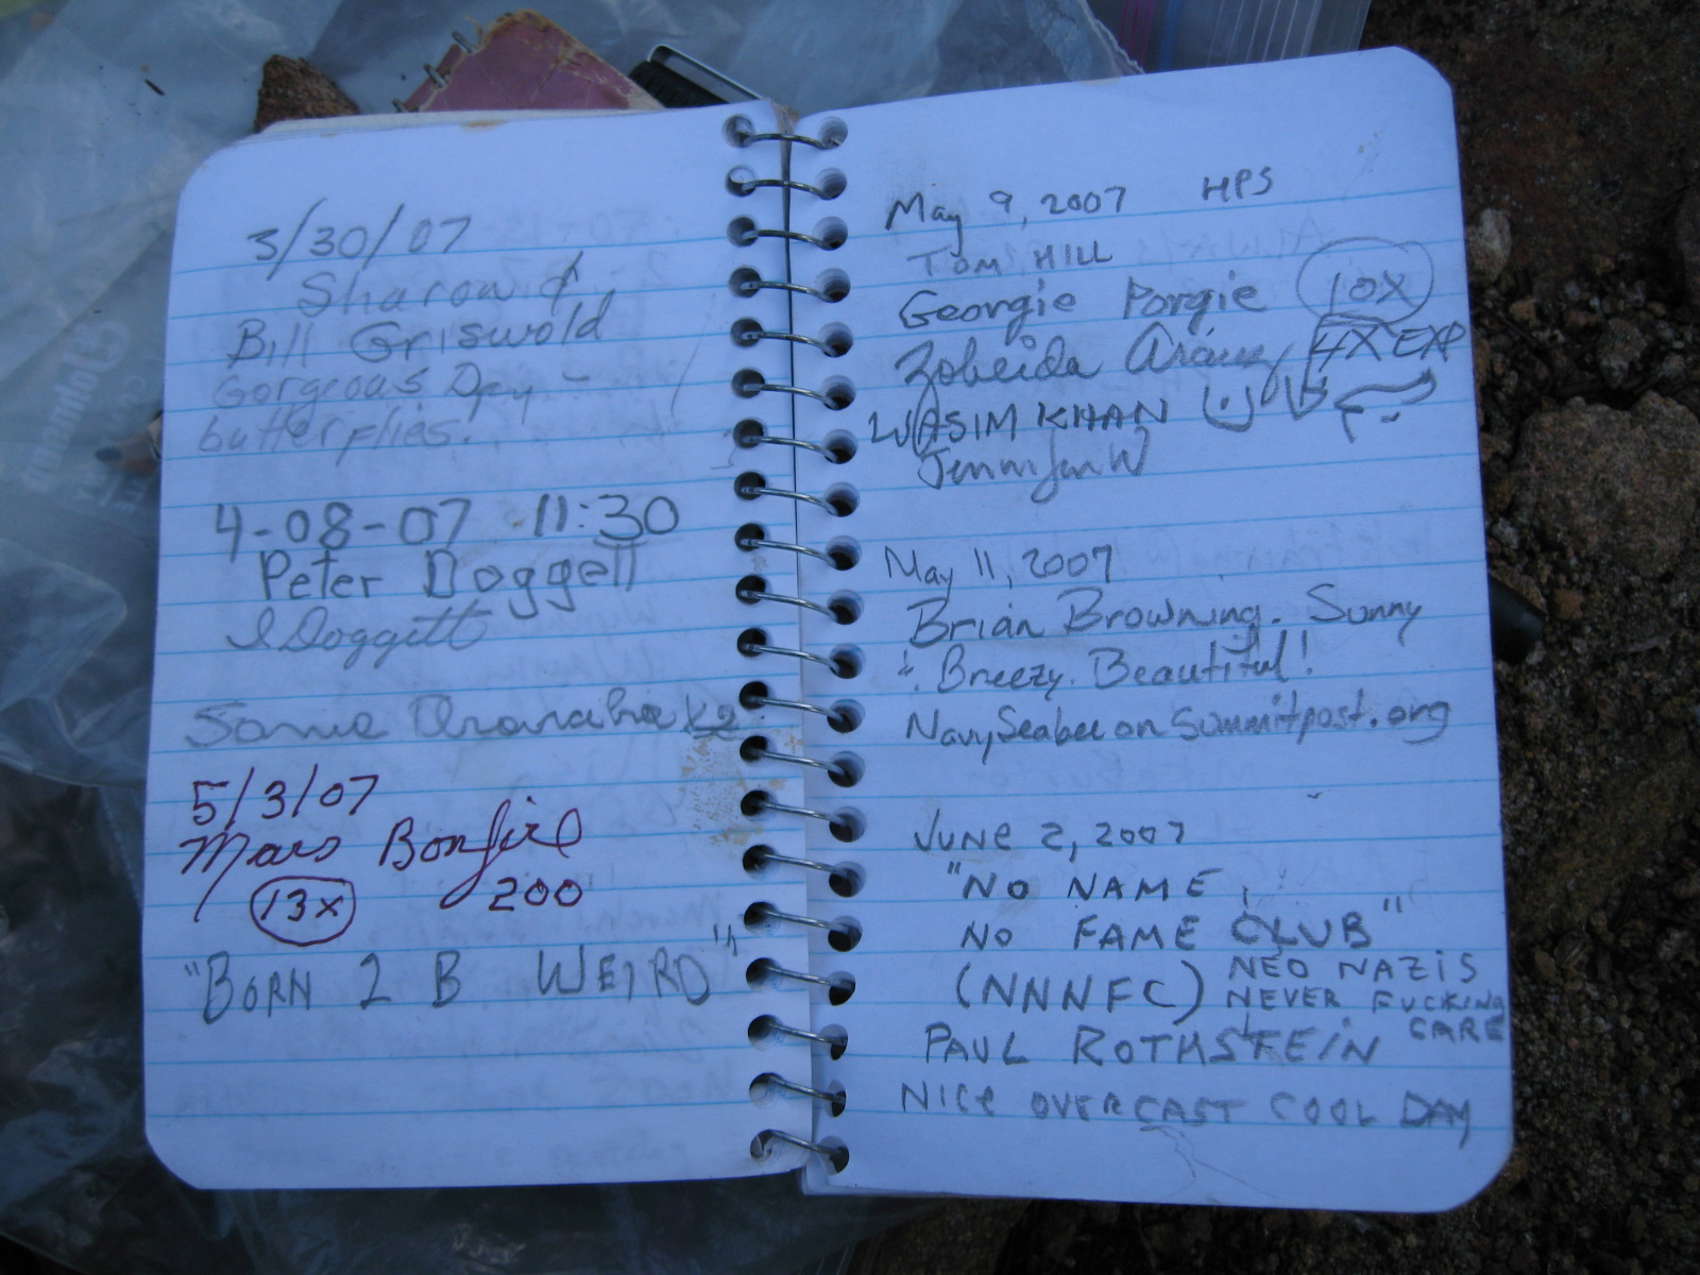 3/30/07
Sharon &
Bill Griswold
Gorgeous Day -
butterflies!
4-08-07 11:30
Peter Doggett
I Doggett
5/3/07
Mars Bonfire
13x 200
"BORN 2 B WEIRD"
May 9, 2007 HPS
TOM HILL
Georgie Porgie 10X
Zobeida 4X EXP
WASIM KHAN
Jennifer W
May 11, 2007
Brian Browning. Sunny
& Breezy. Beautiful!
NavySeabee on Summitpost.org
JUNE 2, 2007
"NO NAME,
NO FAME CLUB"
(NNNFC) NEO NAZIS
NEVER FUCKING
CARE
PAUL ROTHSTEIN
NICE OVERCAST COOL DAY